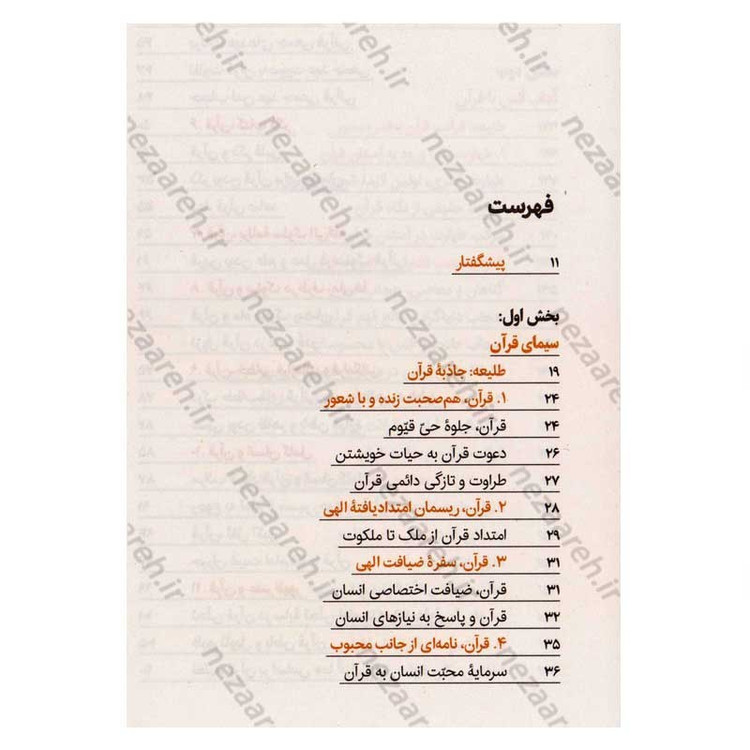 فهرست
پیشگفتار ۱۱
بخش اول:
سیمای قرآن
طلیعه: جاذبهٔ قرآن ۱۹
۱. قرآن، هم‌صحبت زنده و با شعور ۲۴
قرآن، جلوهٔ حیّ قیّوم ۲۴
دعوت قرآن به حیات خویشتن ۲۶
طراوت و تازگی دائمی قرآن ۲۷
۲. قرآن، ریسمان امتدادیافتهٔ الهی ۲۸
امتداد قرآن از ملک تا ملکوت ۲۹
۳. قرآن، سفرهٔ ضیافت الهی ۳۱
قرآن، ضیافت اختصاصی انسان ۳۱
قرآن و پاسخ به نیازهای انسان ۳۲
۴. قرآن، نامه‌ای از جانب محبوب ۳۵
سرمایهٔ محبّت انسان به قرآن ۳۶
nezaareh.ir